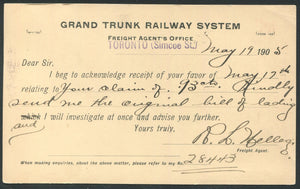 GRAND TRUNK RAILWAY SYSTEM
FREIGHT AGENT'S OFFICE
TORONTO (Simcoe St.)
May 19 1905
Dear Sir.
I beg to acknowledge receipt of your favor of May 17th
relating to Your claim of . Kindly
send me the original bill of lading
and which I will investigate at once and advise you further.
Yours truly,
R. L.
Freight Agent.
When making enquiries, about the above matter, please refer to my No. 28443